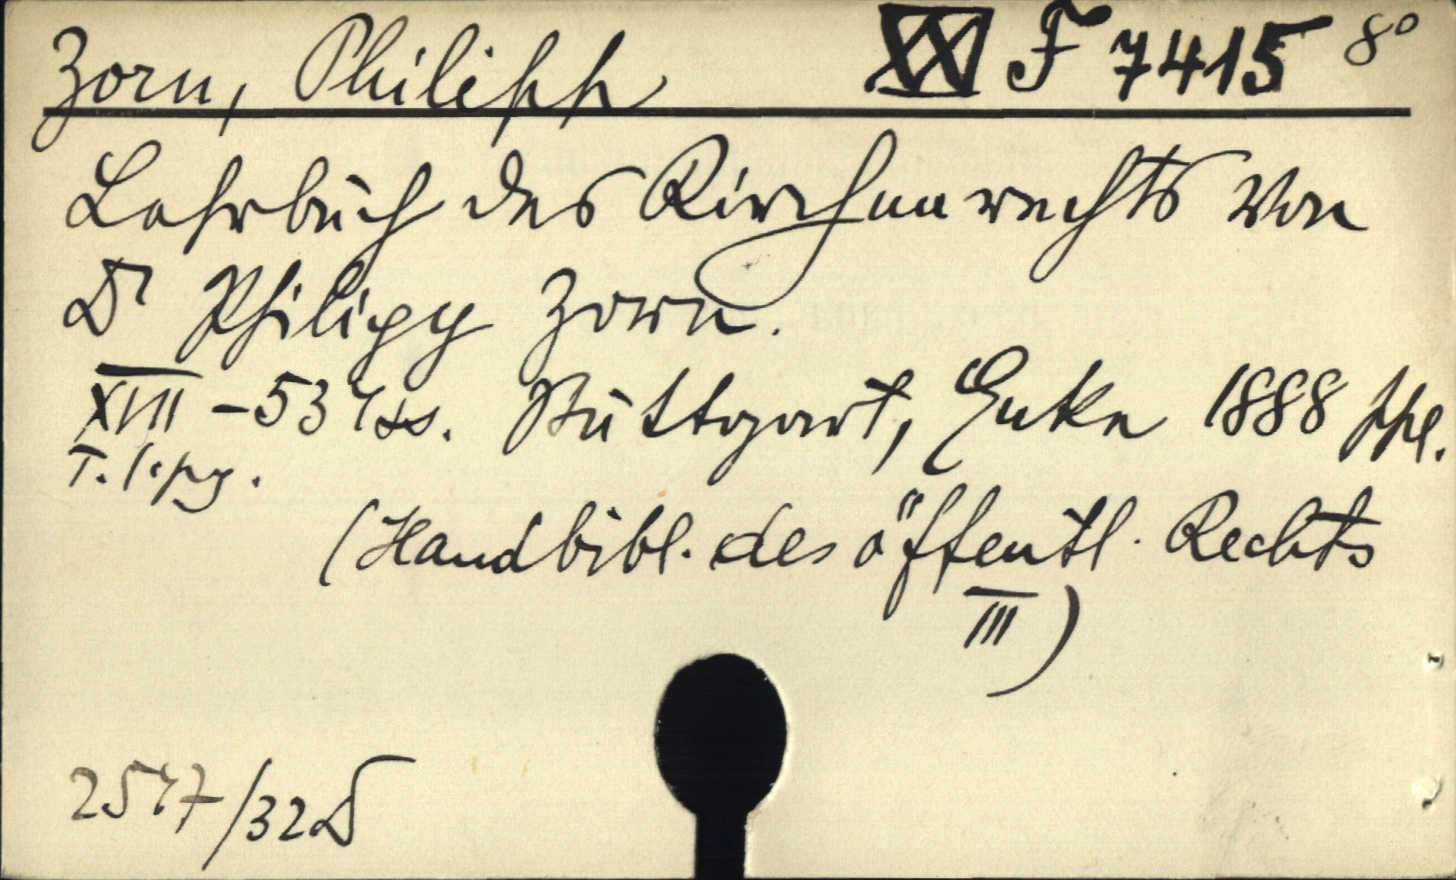 Zorn, Philipp XX F 7415 8°
Lehrbuch des Kirchenrechts von
Dr Philipp Zorn.
XVIII - 534 ss. Stuttgart, Enke 1888 ppl.
T. l. pg.
(Handbibl. des öffentl. Rechts
III)
2547/32 D